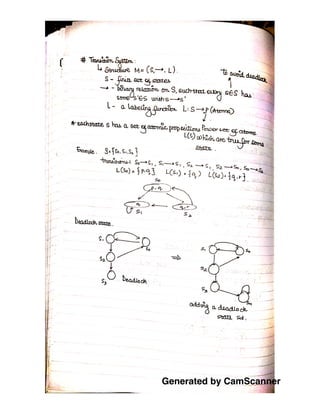 # Transition System
↳ Structure M = (S, →, L)
to avoid deadlock
S - finite set of states
→ - binary relation on S, such that every s∈S has
some s'∈S with s→s'
L - a labeling function L: S→P(Atoms)
* each state s has a set of atomic propositions Power set of atoms
L(s) which are true for some
state.
Example: S={S0, S1, S2}
transitions: S0→S1, S1→S1, S2→S1, S2→S0, S0→S2
L(S0) = {p,q} L(S1) = {q} L(S2) = {q,r}
S0
p,q
q
q,r
S1
S2
Deadlock state.
S1
S0
S2
S3
Deadlock
⇒
S1
S0
S2
S3
Sd
adding a deadlock
state Sd.
Generated by CamScanner